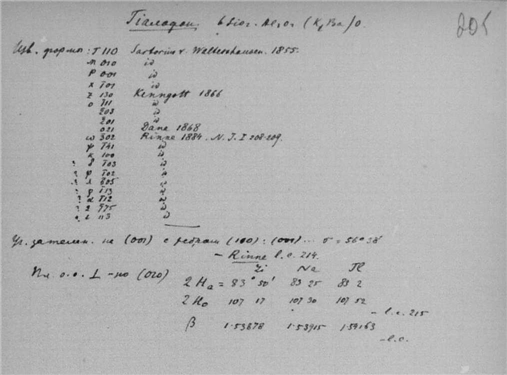 Гіалофан 6 SiO₂. Al₂O₃ (K, Ba)O.
205
Изв. формы: T 110 Sartorius v. Waltershausen. 1855.
M 010 id
P 001 id
x 101 id
z 130 Kenngott 1866
o 111 id
203 id
201 id
021 Dana 1868
302 Rinne 1884. N. J. I 208-209.
141 id
k 100 id
? 103 id
? 102 id
? 205 id
? 113 id
? 112 id
? id
? 113 id
на (001) с ребром (100):(001) ... σ = 56°28'
- Rinne l. c. 214.
Пл. о. о. ⊥-но (010)
Li Na Tl
2 Ha = 83° 50' 83 25 83 2
2 Ho 107 17 107 30 107 52
- l. c. 215
β 1.53878 1.53915 1.54163
- l. c.